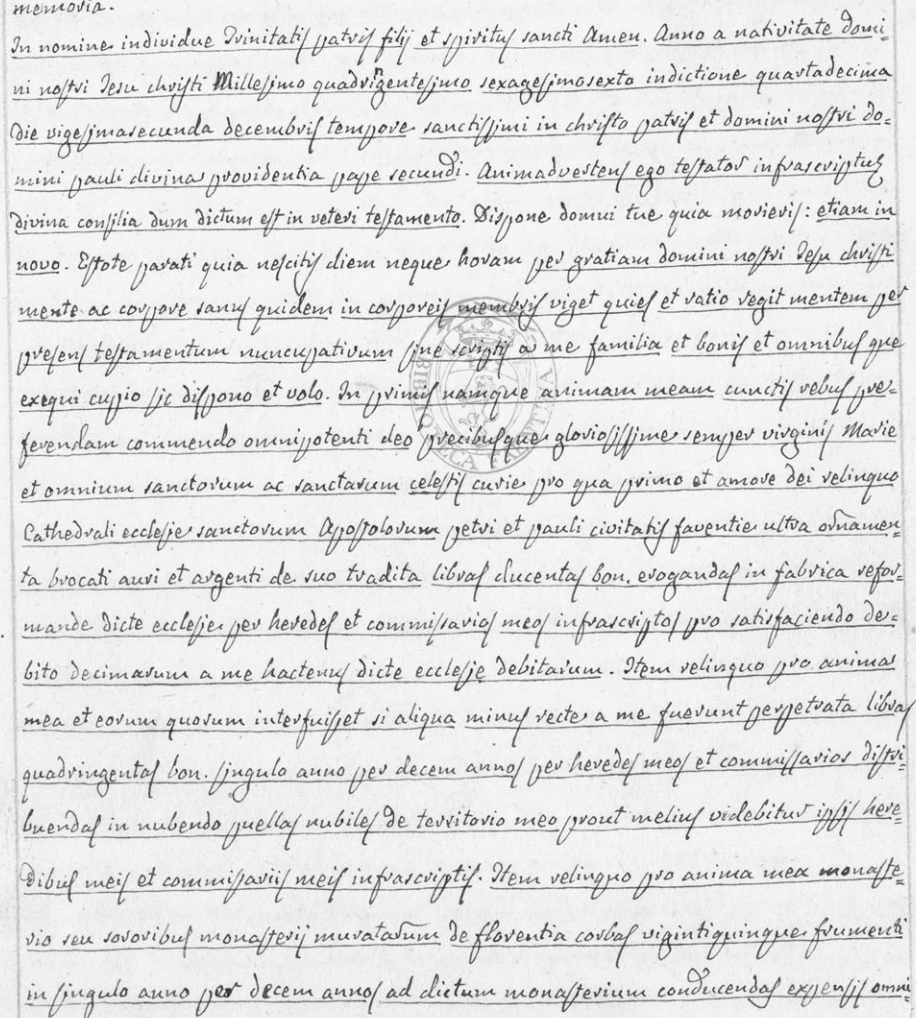 memoria.
In nomine individue Trinitatis patris filij et spiritus sancti Amen. Anno a nativitate domi-
ni nostri Iesu christi Millesimo quadringentesimo sexagesimosexto indictione quartadecima
die vigesimasecunda decembris tempore sanctissimi in christo patris et domini nostri do=
mini pauli divina providentia pape secundi. Animadvertens ego testator infrascriptus
divina consilia dum dictum est in veteri testamento. Dispone domui tue quia morieris: etiam in
novo. Estote parati quia nescitis diem neque horam per gratiam domini nostri Iesu christi
mente ac corpore sanus quidem in corporeis membris viget quies et ratio regit mentem per
presens testamentum nuncupativum sine scriptis a me familia et bonis et omnibus que
exequi cupio sic dispono et volo. In primis namque animam meam cunctis rebus pre=
ferendam commendo omnipotenti deo precibusque gloriosissime semper virginis Marie
et omnium sanctorum ac sanctarum celestis curie pro qua primo et amore dei relinquo
Cathedrali ecclesie sanctorum Apostolorum petri et pauli civitatis faventie ultra ornamen=
ta brocati auri et argenti de suo tradita libras ducentas bon. erogandas in fabrica refor-
mande dicte ecclesie per heredes et commissarios meos infrascriptos pro satisfaciendo de=
bito decimarum a me hactenus dicte ecclesie debitarum. Item relinquo pro anima
mea et eorum quorum interfuisset si aliqua minus recte a me fuerunt perpetrata libras
quadringentas bon. singulo anno per decem annos per heredes meos et commissarios distri-
buendas in nubendo puellas nubiles de territorio meo prout melius videbitur ipsis here
dibus meis et commissariis meis infrascriptis. Item relinquo pro anima mea monaste-
rio seu sororibus monasterij muratarum de florentia corbas vigintiquinque frumenti
in singulo anno per decem annos ad dictum monasterium conducendas expensis omni-